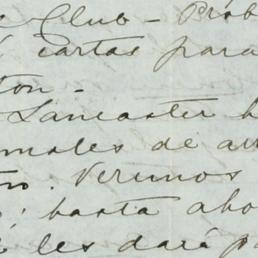 Club - Prob
cartas para
ton -
Lancaster h
males de ar
Verinos
; hasta aho
les dará p